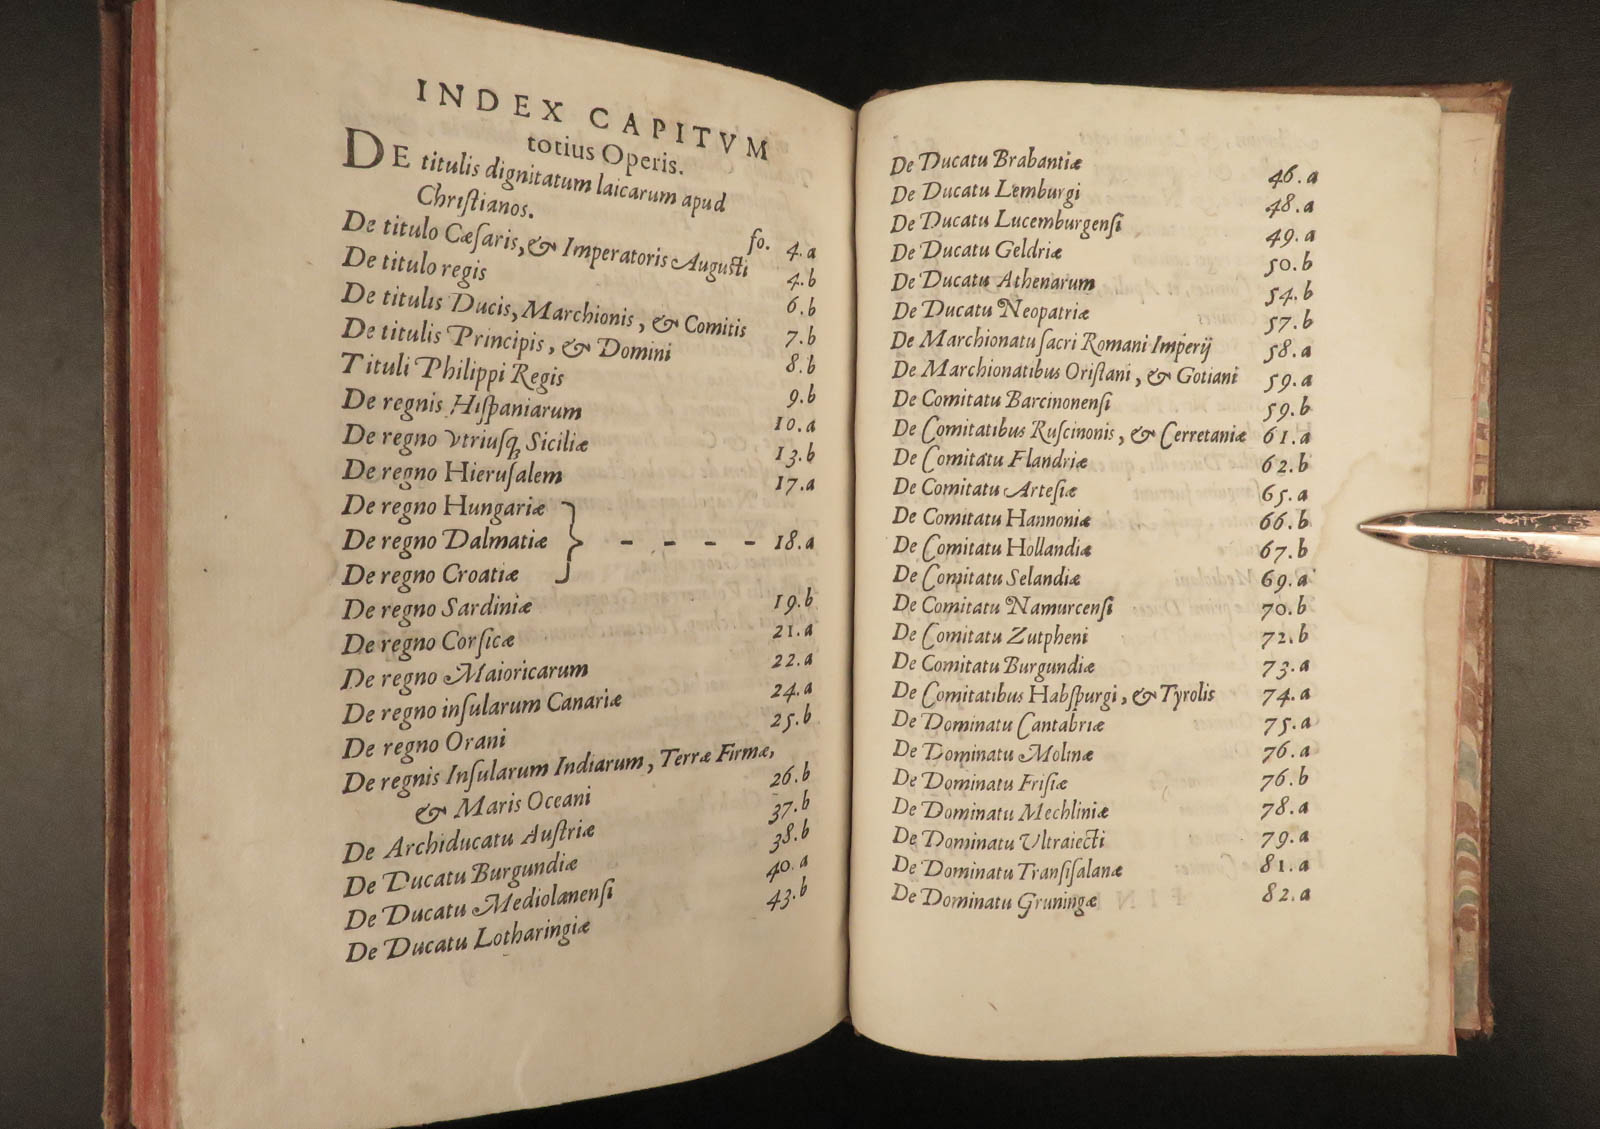 INDEX CAPITVM
totius Operis.
DE titulis dignitatum laicarum apud
Chriſtianos. fo. 4.a
De titulo Cæſaris, & Imperatoris Auguſti 4.b
De titulo regis 6.b
De titulis Ducis, Marchionis, & Comitis 7.b
De titulis Principis, & Domini 8.b
Tituli Philippi Regis 9.b
De regnis Hiſpaniarum 10.a
De regno vtriuſq; Siciliæ 13.b
De regno Hieruſalem 17.a
De regno Hungariæ
De regno Dalmatiæ } - - - - 18.a
De regno Croatiæ
De regno Sardiniæ 19.b
De regno Corſicæ 21.a
De regno Maioricarum 22.a
De regno inſularum Canariæ 24.a
De regno Orani 25.b
De regnis Inſularum Indiarum, Terræ Firmæ,
& Maris Oceani 26.b
De Archiducatu Auſtriæ 37.b
De Ducatu Burgundiæ 38.b
De Ducatu Mediolanenſi 40.a
De Ducatu Lotharingiæ 43.b
De Ducatu Brabantiæ 46.a
De Ducatu Lemburgi 48.a
De Ducatu Lucemburgenſi 49.a
De Ducatu Geldriæ 50.b
De Ducatu Athenarum 54.b
De Ducatu Neopatriæ 57.b
De Marchionatu ſacri Romani Imperij 58.a
De Marchionatibus Oriſtani, & Gotiani 59.a
De Comitatu Barcinonenſi 59.b
De Comitatibus Ruſcinonis, & Cerretaniæ 61.a
De Comitatu Flandriæ 62.b
De Comitatu Arteſiæ 65.a
De Comitatu Hannoniæ 66.b
De Comitatu Hollandiæ 67.b
De Comitatu Selandiæ 69.a
De Comitatu Namurcenſi 70.b
De Comitatu Zutpheni 72.b
De Comitatu Burgundiæ 73.a
De Comitatibus Habſpurgi, & Tyrolis 74.a
De Dominatu Cantabriæ 75.a
De Dominatu Molinæ 76.a
De Dominatu Friſiæ 76.b
De Dominatu Mechliniæ 78.a
De Dominatu Ultraiecti 79.a
De Dominatu Tranſiſalanæ 81.a
De Dominatu Gruningæ 82.a